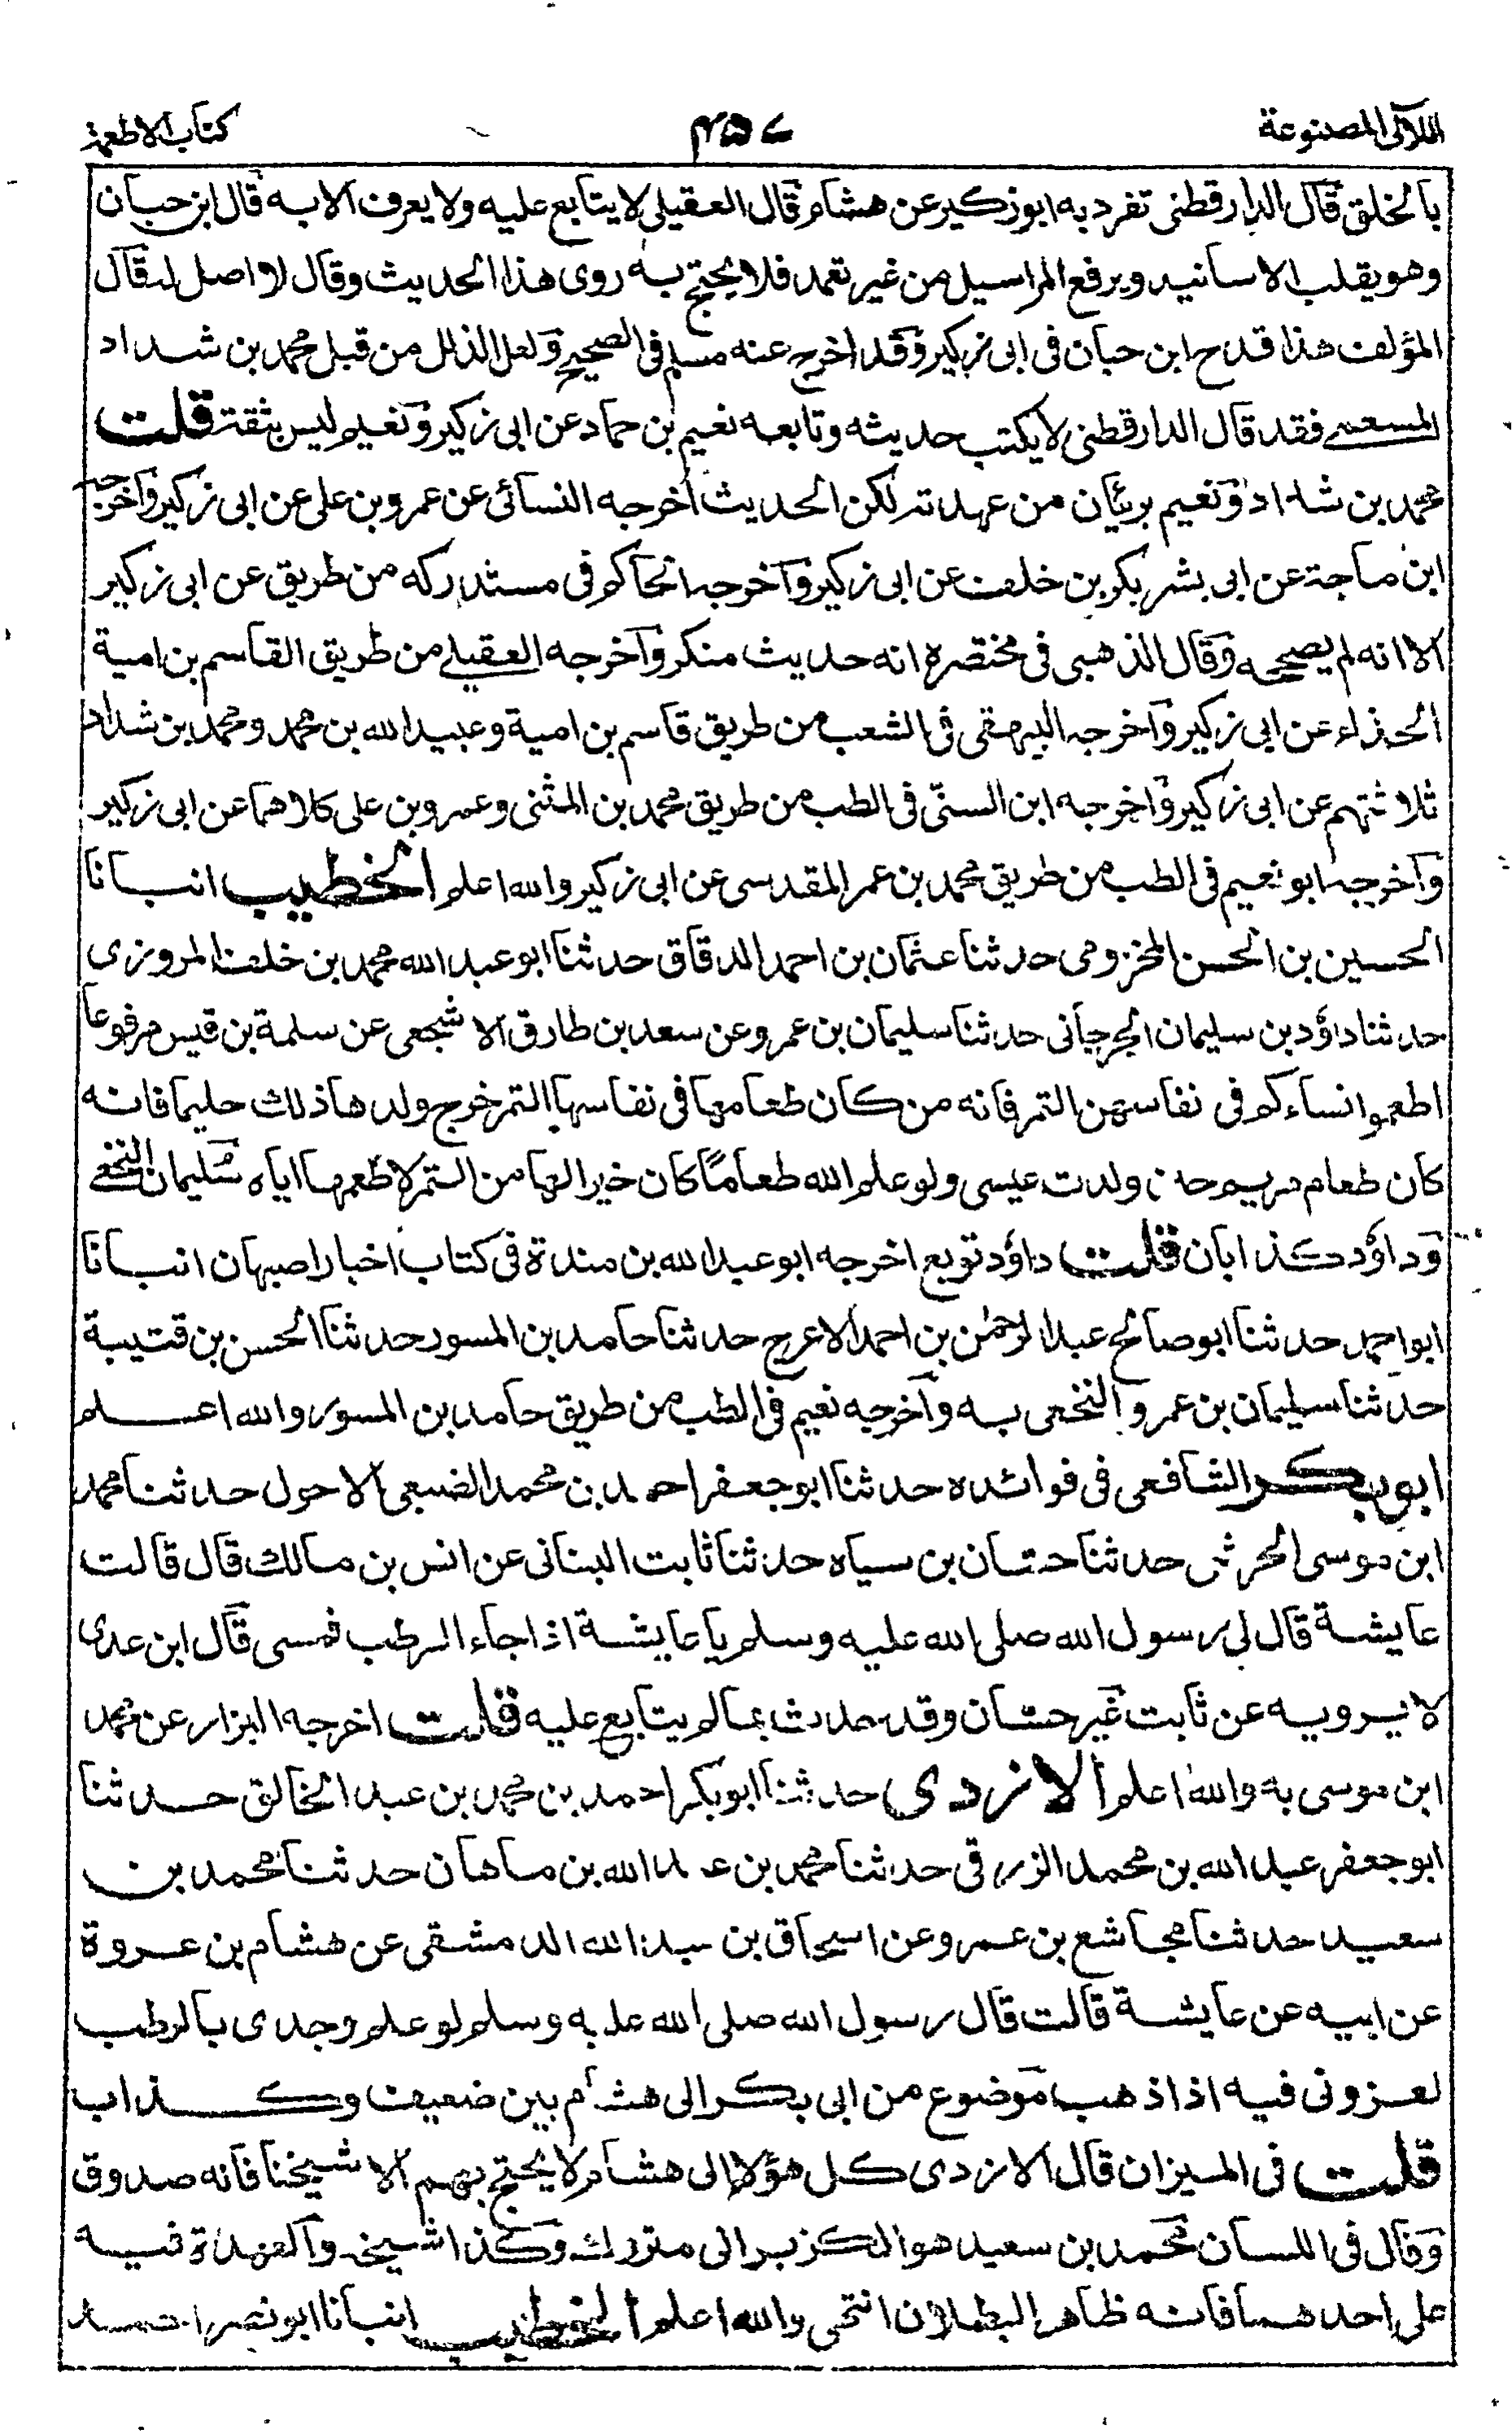 اللآلی المصنوعة
۴۵۷
کتاب الاطعمة
بالخلق قال الدارقطنی تفرد به ابوزکیر عن هشام قال العقیلی لا یتابع علیه ولا یعرف الا به قال ابن حبان
وهو یقلب الاسانید ویرفع المراسیل من غیر تعمد فلا یحتج به روی هذا الحدیث وقال لا اصل له قال
المؤلف هذا قدح ابن حبان فی ابی زکیر وقد اخرج عنه مسلم فی الصحیح ولعل الزلل من قبل محمد بن شداد
المسمعی فقد قال الدارقطنی لا یکتب حدیثه وتابعه نعیم بن حماد عن ابی زکیر ونعیم لیس بثقة قلت
محمد بن شداد ونعیم بریئان من عهدته لکن الحدیث اخرجه النسائی عن عمرو بن علی عن ابی زکیر واخرجه
ابن ماجة عن ابی بشر بکر بن خلف عن ابی زکیر واخرجه الحاکم فی مستدرکه من طریق عن ابی زکیر
الا انه لم یصححه وقال الذهبی فی مختصره انه حدیث منکر واخرجه العقیلی من طریق القاسم بن امیة
الحذاء عن ابی زکیر واخرجه البیهقی فی الشعب من طریق قاسم بن امیة وعبید الله بن محمد ومحمد بن شداد
ثلاثتهم عن ابی زکیر واخرجه ابن السنّی فی الطب من طریق محمد بن المثنی وعمرو بن علی کلاهما عن ابی زکیر
واخرجه ابو نعیم فی الطب من طریق محمد بن عمر المقدسی عن ابی زکیر والله اعلم الخطیب انبانا
الحسین بن الحسن المخزومی حدثنا عثمان بن احمد الدقاق حدثنا ابو عبد الله محمد بن خلف المروزی
حدثنا داؤد بن سلیمان الجرجانی حدثنا سلیمان بن عمرو عن سعد بن طارق الاشجعی عن سلمة بن قیس مرفوعا
اطعموا نساءکم فی نفاسهن التمر فانه من کان طعامها فی نفاسها التمر خرج ولدها ذلك حلیما فانه
کان طعام مریم حین ولدت عیسی ولو علم الله طعامًا کان خیرا لها من التمر لاطعمها ایاه سُلیمان النخعی
وداؤد کذابان قلت داؤد توبع اخرجه ابو عبد الله بن مندة فی کتاب اخبار اصبهان انبانا
ابواحمد حدثنا ابوصالح عبد الرحمٰن بن احمد الاعرج حدثنا حامد بن المسور حدثنا الحسن بن قتیبة
حدثنا سلیمان بن عمرو النخعی به واخرجه نعیم فی الطب من طریق حامد بن المسور والله اعلم
ابوبکر الشافعی فی فوائده حدثنا ابو جعفر احمد بن محمد الضبعی الاحول حدثنا محمد
ابن موسی الحرشی حدثنا حسان بن سیاه حدثنا ثابت البنانی عن انس بن مالك قال قالت
عایشة قال لی رسول الله صلی الله علیه وسلم یا عایشة اذا جاء الرطب فهسی قال ابن عدی
لا یرویه عن ثابت غیر حسان وقد حدث بما لم یتابع علیه قلت اخرجه البزار عن محمد
ابن موسی به والله اعلم الازدی حدثنا ابوبکر احمد بن محمد بن عبد الخالق حدثنا
ابو جعفر عبد الله بن محمد الزرقی حدثنا محمد بن عبد الله بن ماهان حدثنا محمد بن
سعید حدثنا مجاشع بن عمرو عن اسحاق بن عبد الله الدمشقی عن هشام بن عروة
عن ابیه عن عایشة قالت قال رسول الله صلی الله علیه وسلم لو علم وجدی بالرطب
لعزونی فیه اذا ذهب موضوع من ابی بکر الی هشام بین ضعیف وکذاب
قلت فی المیزان قال الازدی کل هؤلاء الی هشام لا یحتج بهم الا شیخنا فانه صدوق
وقال فی اللسان محمد بن سعید هو الکزبرالی متروك وکذا شیخه والعهدة فیه
علی احدهما فانه ظاهر البطلان انتهی والله اعلم الخطیب انبانا ابونصر احمد